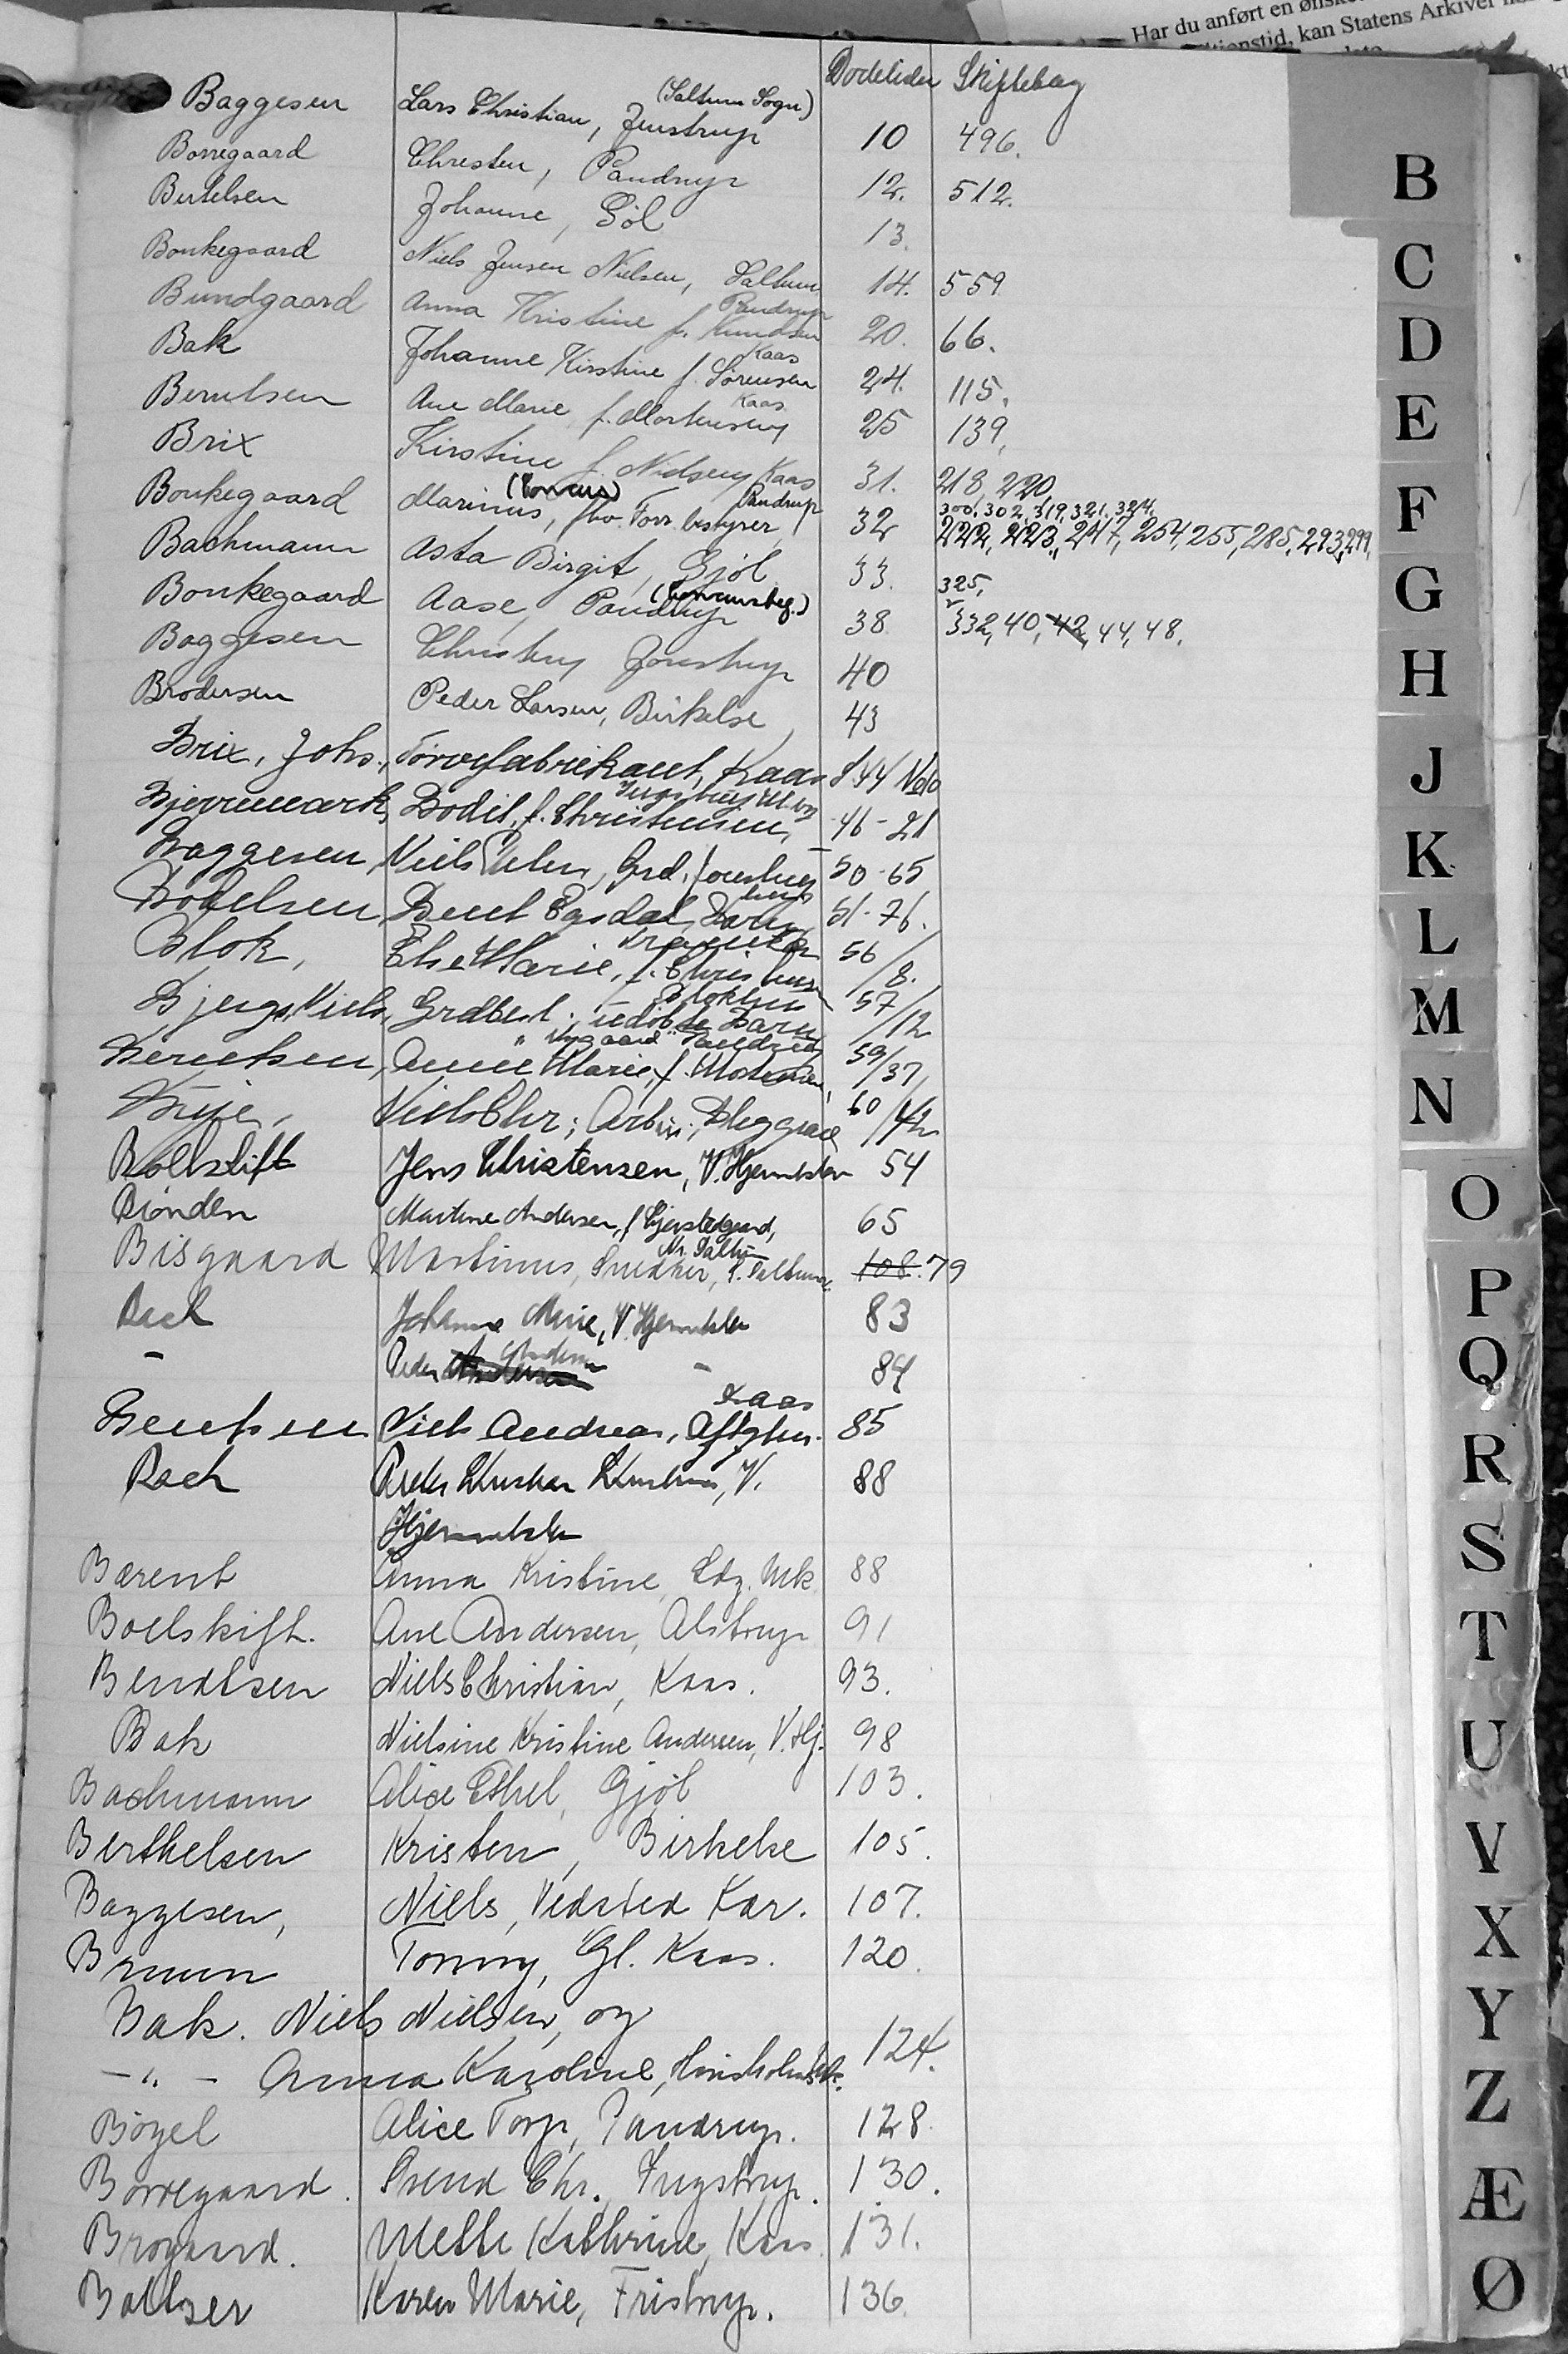 Har du anført en
kan Statens Arkiver
Dødelister Skiftebog
Baggesen Lars Christian, Jenstrup (Saltum Sogn) 10 496.
Borregaard Chresten, Pandrup 12. 512.
Bertelsen Johanne, Gjøl 13.
Bonkegaard Niels Jensen Nielsen, Saltum 14. 559.
Bundgaard Anna Kristine f. Knudsen Pandrup 20. 66.
Bak Johanne Kirstine f. Sørensen Kaas 24. 115.
Berntsen Ane Marie f. Mortensen, Kaas 25 139,
Brix Kirstine f. Nielsen, Kaas 31. 218, 220,
Bonkegaard Marinus, (Concurs) fhv. Forr. bestyrer, Pandrup 32 222, 223, 247, 254, 255, 285, 293, 299, 300, 302, 319, 321, 324,
Bachmann Asta Birgit, Gjöl 33. 325,
Bonkegaard Aase, Pandrup (Concursbeg.) 38 332, 40, 42, 44, 48.
Baggesen Christen, Jonstrup 40
Brodersen Peder Larsen, Birkelse 43
Brix, Johs., Tørvefabrikant, Kaas 44 No 10
Bjerremark, Bodil, f. Christensen, 46 - 21
Baggesen, Niels Peter, Grd. 50 - 65
Bodelsen, Bent Egsdal, Barn 51 - 76.
Blok, Else Marie, f. Christensen 56/8.
Bjerg, Niels, Grdbest. udøbte Barn Blokhus 57/12
Berentsen, Anne Marie, f. Mortensen, Pandrup 59/37,
Niels Chr., Arb., 60/42
Bolskift Jens Christensen, V. Hjermitslev 54
Bionden Martine Andersen, f. Gjerstedgaard, Nr. Saltum 65
Bisgaard Martinus, Snedker, S. Saltum. 108. 79
Bach Johanne Marie, V. Hjermitslev 83
- Peder Andersen - 84
Bentsen Niels Andreas, Aftgtm. Kaas 85
Bach Peder Kristian Kristensen, V. 88
Hjermitslev
Barent Anna Kristine, Edg. Mk 88
Boelskift. Ane Andersen, Alstrup 91
Bendtsen Niels Christian, Kaas. 93.
Bak Nielsine Kristine Andersen, V. Hj. 98
Bachmann Alice Ethel, Gjöl 103.
Berthelsen Kristen, Birkelse 105.
Baggesen, Niels, Vedsted Kær. 107.
Bruun Tonny, Gl. Kaas. 120.
Bak. Niels Nielsen, og
- " - Anna Karoline, 124.
Bögel Alice Torp, Pandrup. 128.
Borregaard. Svend Chr., Ingstrup. 130.
Brogaard. Mette Kathrine, Kaas. 131.
Baltzer Karen Marie, Fristrup. 136.
B
C
D
E
F
G
H
J
K
L
M
N
O
P
Q
R
S
T
U
V
X
Y
Z
Æ
Ø